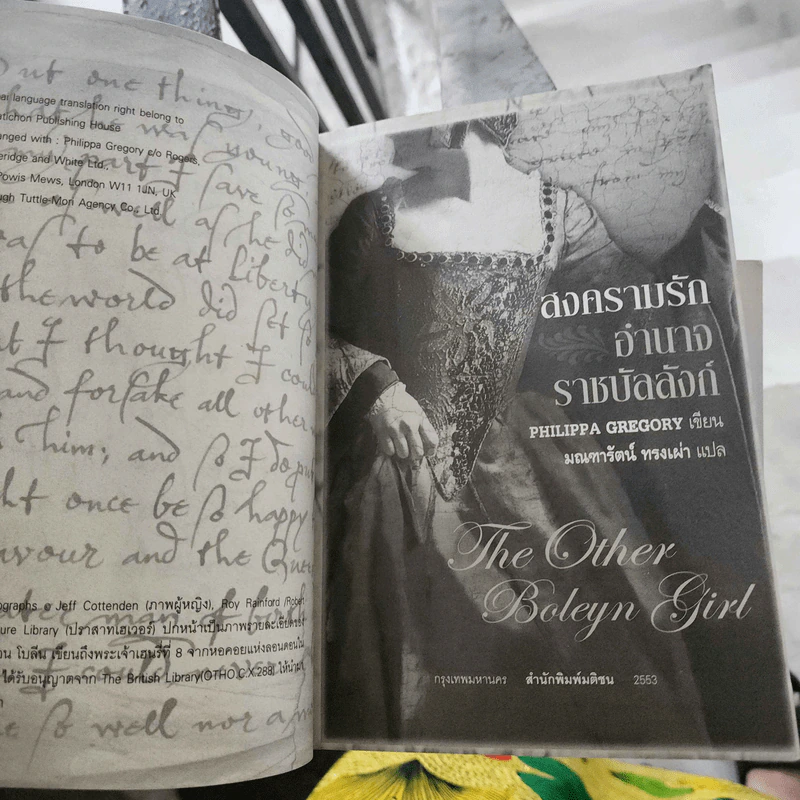 ai language translation right belong to
atichon Publishing House
anged with : Philippa Gregory c/o Rogers,
eridge and White Ltd.,
Powis Mews, London W11 1JN, UK
ugh Tuttle-Mori Agency Co., Ltd.
but one thing,
he was young
part I save so
well as he did
was to be at liberty
the world did set so
I thought I could
and forsake all other
him; and so I do put
ht once be so happy
avour and the Que
ographs © Jeff Cottenden (ภาพผู้หญิง), Roy Rainford /Robert
ure Library (ปราสาทเฮเวอร์) ปกหน้าเป็นภาพรายละเอียด
น โบลีน เขียนถึงพระเจ้าเฮนรี่ที่ 8 จากหอคอยแห่งลอนดอนใน
ได้รับอนุญาตจาก The British Library(OTHO.C.X.288) ให้นำมา
so well nor a
สงครามรัก
อำนาจ
ราชบัลลังก์
PHILIPPA GREGORY เขียน
มณฑารัตน์ ทรงเผ่า แปล
The Other
Boleyn Girl
กรุงเทพมหานคร สำนักพิมพ์มติชน 2553